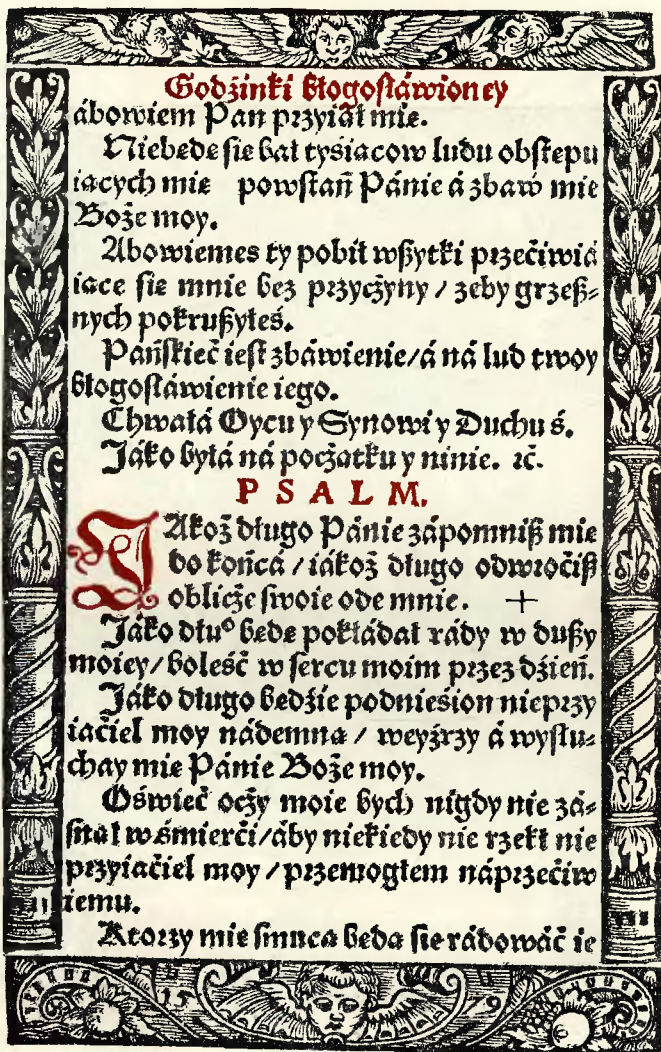 Godżinki błogosłáwioney
ábowiem Pan przyiął mie.
Niebede sie bał tysiacow ludu obstepu
iacych mie powstań Pánie á zbaw mie
Boże moy.
Abowiemes ty pobił wßytki przećiwiá
iace sie mnie bez przyczyny / zeby grzeß⸗
nych pokrußyłeś.
Páńskieć iest zbáwienie / á ná lud twoy
błogosłáwienie iego.
Chwałá Oycu y Synowi y Duchu ś.
Jáko byłá ná poczatku y ninie. ꝛc.
PSALM.
JAkoż długo Pánie zápomniß mie
do końcá / iákoż długo odwroćiß
oblicze swoie ode mnie. +
Jáko dłuº bede pokłádał rády w dußy
moiey / boleść w sercu moim przez dżień.
Jáko długo bedżie podniesion nieprzy
iaćiel moy nádemna / weyźrzy á wysłu⸗
chay mie Pánie Boże moy.
Oświeć oczy moie bych nigdy nie zá⸗
snał w śmierći / áby niekiedy nie rzekł nie
przyiaćiel moy / przemogłem náprzećiw
iemu.
Ktorzy mie smuca beda sie rádowáć ie
15 9